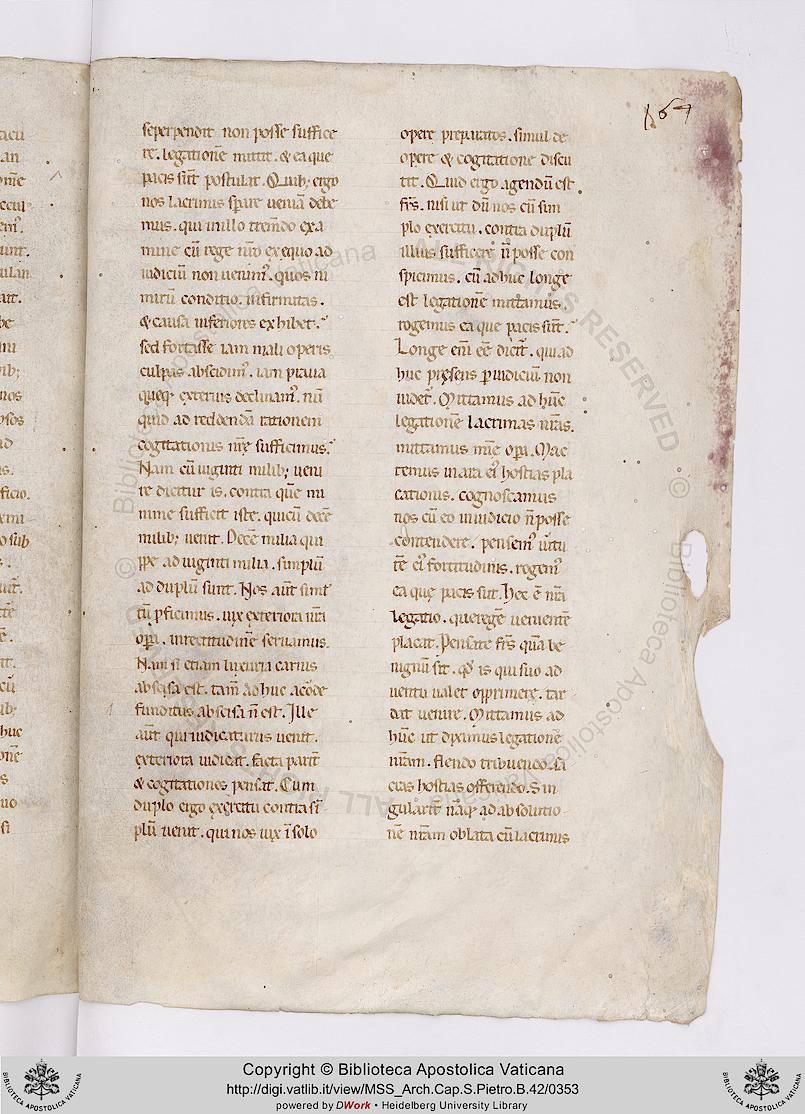 167
se perpendit non posse suffice
re. legationē mittit. & ea que
pacis sūt postulat. Quib; ergo
nos lacrimis spare ueniā debe
mus. qui in illo tremdo exa
mine cū rege nr̄o ex equo ad
iudiciū non uenim'. quos ni
mirū conditio. infirmitas.
& causa inferiores exhibet.
sed fortasse iam mali operis
culpas abscidim'. iam praua
queq; exterius declinam'. nū
quid ad reddendā rationem
cogitationis nr̄ę sufficimus.
Nam cū uiginti milib; ueni
re dicitur is. contra quē mi
nime sufficit iste. qui cū decē
milib; uenit. Decē milia qui
ppe ad uiginti milia. simplū
ad duplū sunt. Nos aūt si mł
tū pficimus. uix exteriora nr̄a
opa. in rectitudinē seruamus.
Nam si etiam luxuria carnis
abscisa est. tam̄ adhuc a corde
funditus abscisa n̄ est. Ille
aūt qui iudicaturus uenit.
exteriora iudicat. facta parit̄
& cogitationes pensat. Cum
duplo ergo exercitu contra si
plū uenit. qui nos uix ī solo
opere preparatos. simul de
opere & cogitatione discu
tit. Quid ergo agendū est
frs̄. nisi ut dū nos cū sim
plo exercitu. contra duplū
illius sufficere n̄ posse con
spicimus. cū adhuc longe
est legationē mittamus.
rogemus ea que pacis sūt.
Longe eni eē dicit̄. qui ad
huc pręsens p iudiciū non
uidet̄. Mittamus ad hūc
legationē lacrimas nr̄as.
mittamus mīe opa. Mac
temus in ara ei' hostias pla
cationis. cognoscamus
nos cū eo in iudicio n̄ posse
contendere. pensem' uirtu
tē ei' fortitudinis. rogem'
ea que pacis sūt. Hec ē nr̄a
legatio. que regē uenientē
placat. Pensate frs̄ quā be
nignū sit. qd̄ is qui suo ad
uentu ualet opprimere. tar
dat uenire. Mittamus ad
hūc ut diximus legationē
nr̄am. flendo tribuendo. sa
cras hostias offerendo. Sin
gularit̄ nāq; ad absolutio
nē nr̄am oblata cū lacrimis
Copyright © Biblioteca Apostolica Vaticana
http://digi.vatlib.it/view/MSS_Arch.Cap.S.Pietro.B.42/0353
powered by DWork • Heidelberg University Library